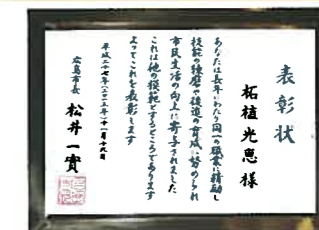 表彰状
柘植光恵 様
あなたは長年にわたり同一の職業に精励し
技能の錬磨や後進の育成に努められ
市民生活の向上に寄与されました
これは他の模範とするところであります
よってこれを表彰します
平成二十七年(二〇一五年)十一月十九日
広島市長 松井一實